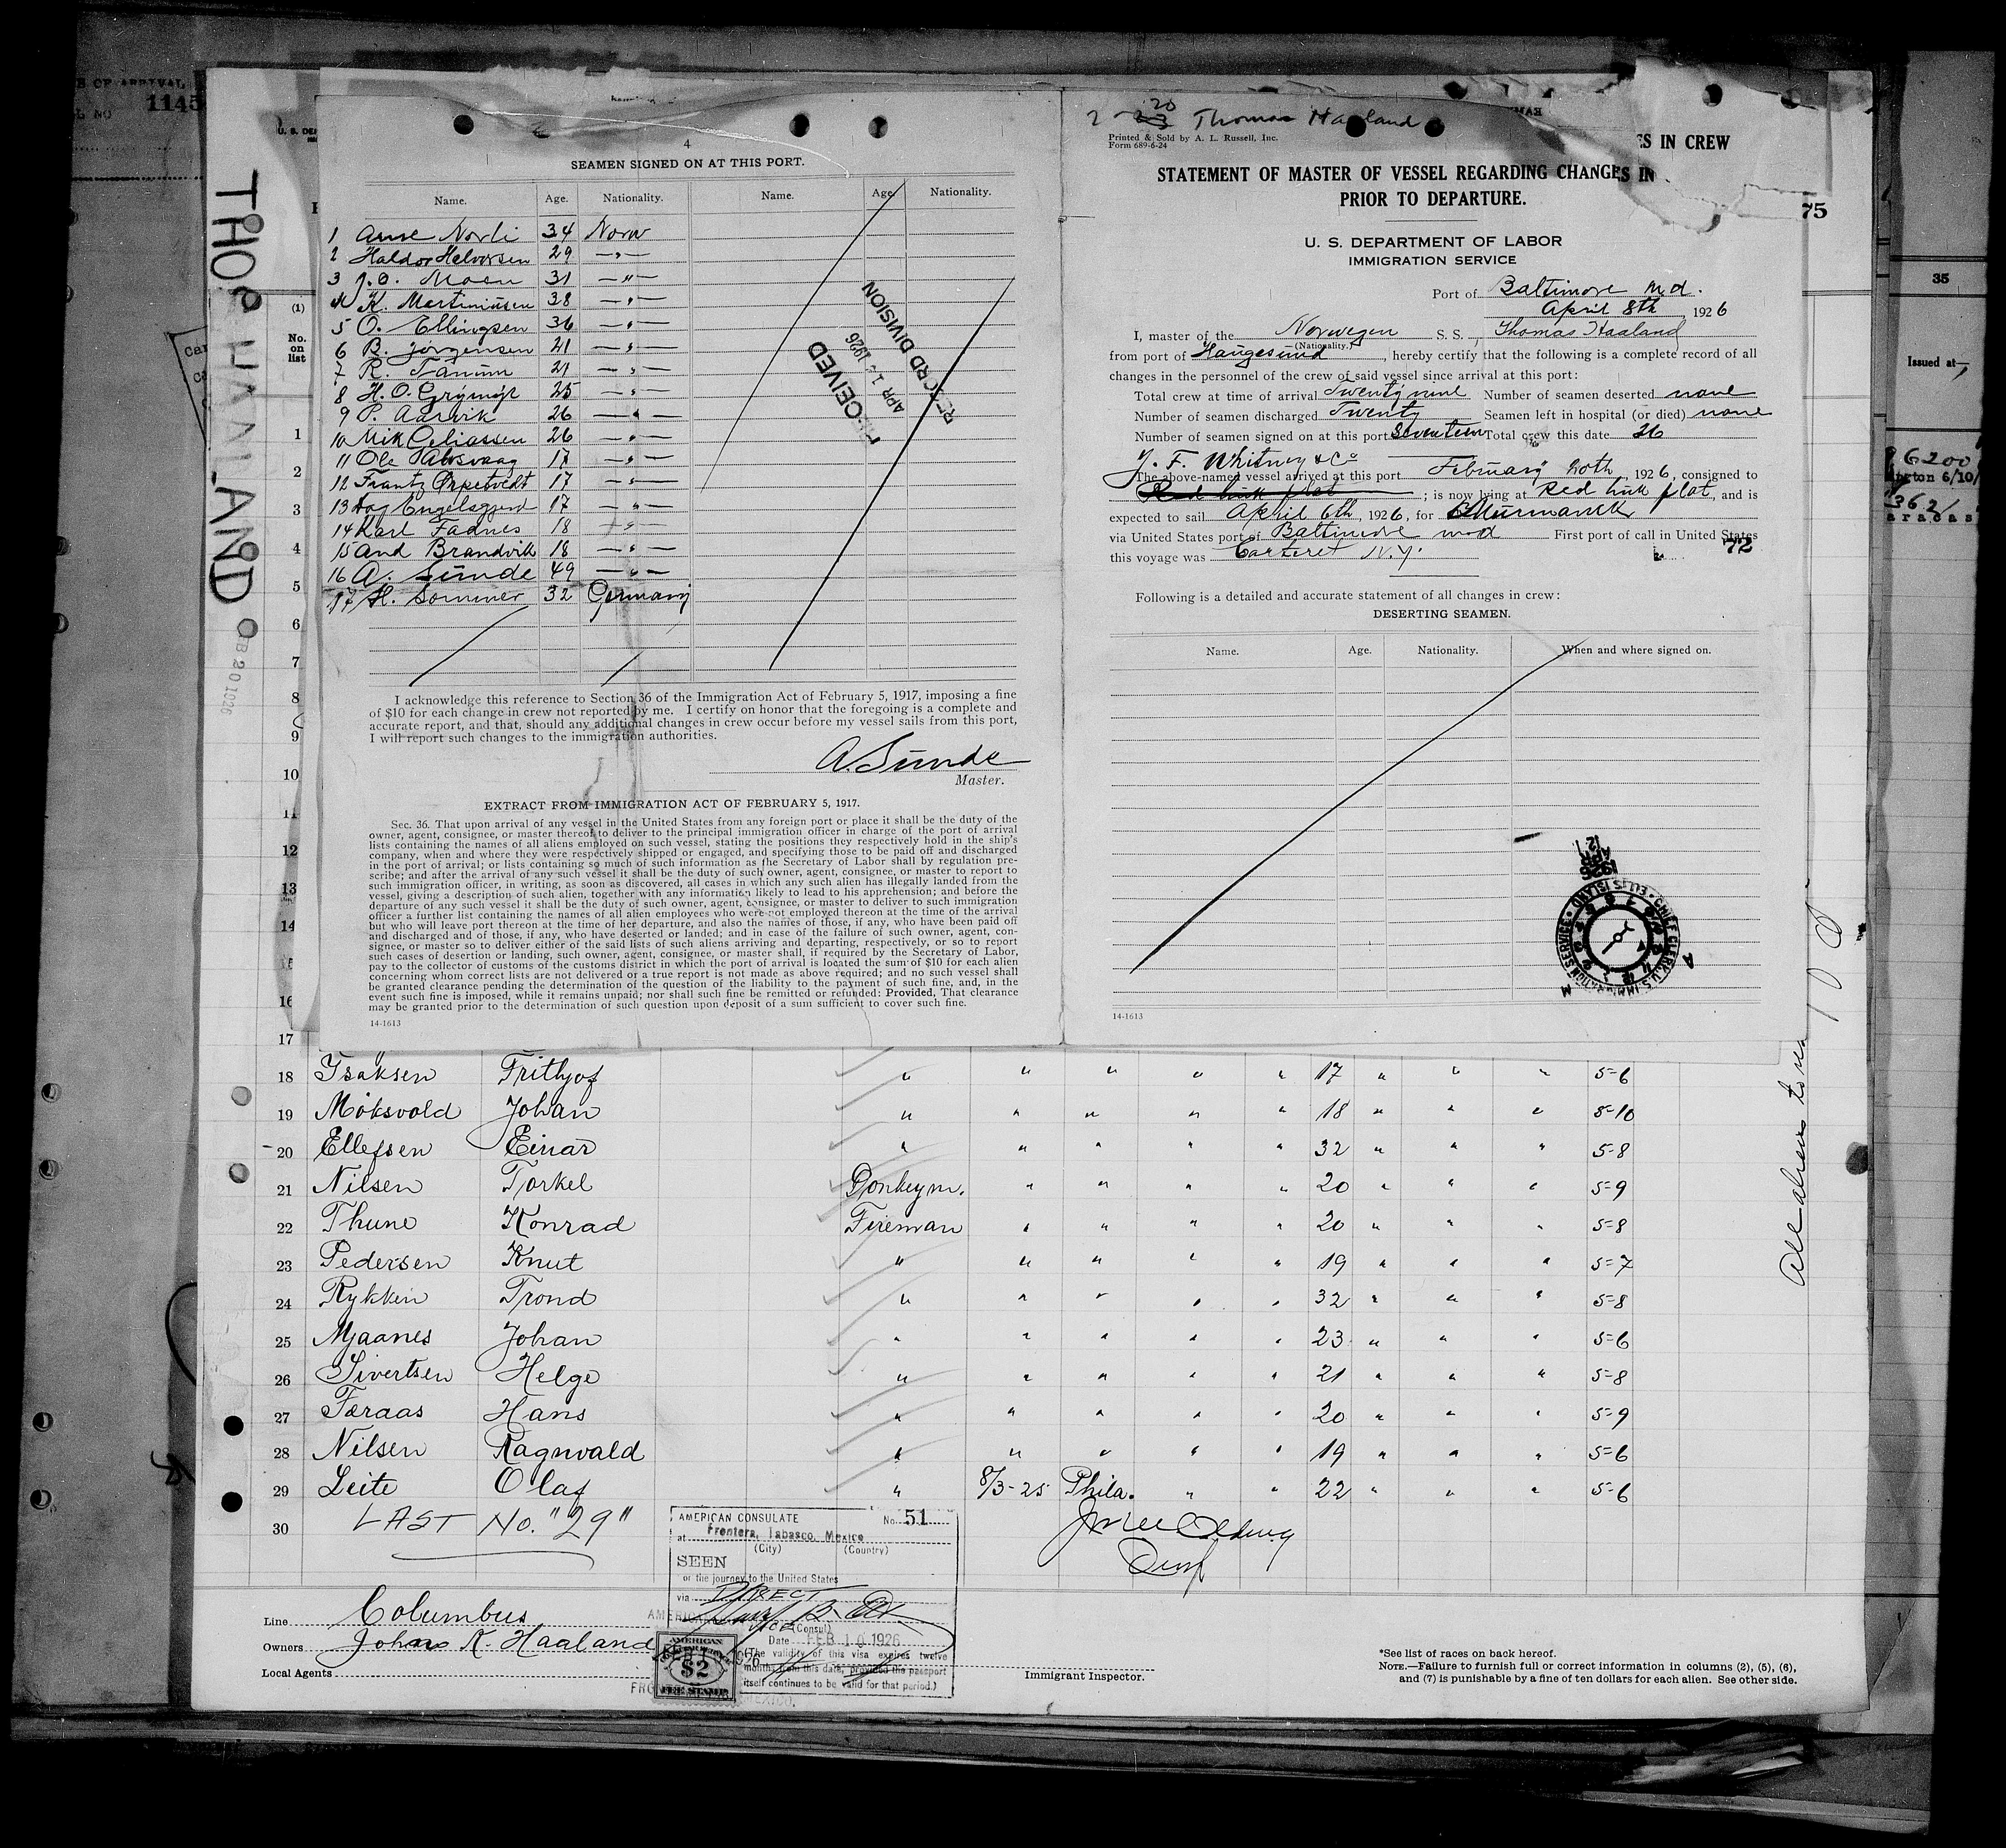 1145
THOMAS HAALAND
4
SEAMEN SIGNED ON AT THIS PORT.
Name. Age. Nationality. Name. Age. Nationality.
1 Arne Norli 34 Norw
2 Haldor Halvorsen 29 — " —
3 J. O. Moen 31 — " —
4 K. Martiniusen 38 — " —
5 O. Ellingsen 36 — " —
6 B. Jörgensen 21 — " —
7 R. 21 — " —
8 H. O. 25 — " —
9 P. Aarvik 26 — " —
10 Mik Eeliassen 26 — " —
11 Ole 17 — " —
12 Frantz 17 — " —
13 Dag 17 — " —
14 Karl Fadnes 18 — " —
15 And Brandvik 18 — " —
16 A. Sunde 49 — " —
17 H. Sommer 32 Germany
RECEIVED
APR 1 1926
RECORD DIVISION
I acknowledge this reference to Section 36 of the Immigration Act of February 5, 1917, imposing a fine
of $10 for each change in crew not reported by me. I certify on honor that the foregoing is a complete and
accurate report, and that, should any additional changes in crew occur before my vessel sails from this port,
I will report such changes to the immigration authorities.
A. Sunde
Master.
EXTRACT FROM IMMIGRATION ACT OF FEBRUARY 5, 1917.
Sec. 36. That upon arrival of any vessel in the United States from any foreign port or place it shall be the duty of the
owner, agent, consignee, or master thereof to deliver to the principal immigration officer in charge of the port of arrival
lists containing the names of all aliens employed on such vessel, stating the positions they respectively hold in the ship's
company, when and where they were respectively shipped or engaged, and specifying those to be paid off and discharged
in the port of arrival; or lists containing so much of such information as the Secretary of Labor shall by regulation pre-
scribe; and after the arrival of any such vessel it shall be the duty of such owner, agent, consignee, or master to report to
such immigration officer, in writing, as soon as discovered, all cases in which any such alien has illegally landed from the
vessel, giving a description of such alien, together with any information likely to lead to his apprehension; and before the
departure of any such vessel it shall be the duty of such owner, agent, consignee, or master to deliver to such immigration
officer a further list containing the names of all alien employees who were not employed thereon at the time of the arrival
but who will leave port thereon at the time of her departure, and also the names of those, if any, who have been paid off
and discharged and of those, if any, who have deserted or landed; and in case of the failure of such owner, agent, con-
signee, or master so to deliver either of the said lists of such aliens arriving and departing, respectively, or so to report
such cases of desertion or landing, such owner, agent, consignee, or master shall, if required by the Secretary of Labor,
pay to the collector of customs of the customs district in which the port of arrival is located the sum of $10 for each alien
concerning whom correct lists are not delivered or a true report is not made as above required; and no such vessel shall
be granted clearance pending the determination of the question of the liability to the payment of such fine, and, in the
event such fine is imposed, while it remains unpaid; nor shall such fine be remitted or refunded: Provided, That clearance
may be granted prior to the determination of such question upon deposit of a sum sufficient to cover such fine.
14-1613
2-20 Thomas Haaland
Printed & Sold by A. L. Russell, Inc.
Form 689-6-24
ES IN CREW
STATEMENT OF MASTER OF VESSEL REGARDING CHANGES IN
PRIOR TO DEPARTURE.
75
U. S. DEPARTMENT OF LABOR
IMMIGRATION SERVICE
Port of Baltimore Md.
April 8th, 1926
I, master of the Norwegen S. S., Thomas Haaland
(Nationality.)
from port of Haugesund, hereby certify that the following is a complete record of all
changes in the personnel of the crew of said vessel since arrival at this port:
Total crew at time of arrival Twenty nine Number of seamen deserted none
Number of seamen discharged Twenty Seamen left in hospital (or died) none
Number of seamen signed on at this port Seventeen Total crew this date 26
J. F. Whitney & Co
The above-named vessel arrived at this port February 20th, 1926, consigned to
Red hook flat; is now lying at Red hook flat, and is
expected to sail April 6th, 1926, for Murmansk
via United States port of Baltimore md First port of call in United States
this voyage was Carteret N.Y. 72
Following is a detailed and accurate statement of all changes in crew:
DESERTING SEAMEN.
Name. Age. Nationality. When and where signed on.
1926 APR 12
CHIEF CLERK, U.S. IMMIGRATION SERVICE • ELLIS ISLAND •
14-1613
35
Issued at
(1)
No. on list
1
2
3
4
5
6
7
8
9
10
11
12
13
14
15
16
17
18 Isaksen Frithjof " " " " " 17 " " " 5-6
19 Moksvold Johan " " " " " 18 " " " 5-10
20 Ellefsen Einar " " " " " 32 " " " 5-8
21 Nilsen Torkel Donkeym. " " " " 20 " " " 5-9
22 Thune Konrad Fireman " " " " 20 " " " 5-8
23 Pedersen Knut " " " " " 19 " " " 5-7
24 Rykken Trond " " " " " 32 " " " 5-8
25 Mjaanes Johan " " " " " 23 " " " 5-6
26 Sivertsen Helge " " " " " 21 " " " 5-8
27 Færaas Hans " " " " " 20 " " " 5-9
28 Nilsen Ragnvald " " " " " 19 " " " 5-6
29 Leite Olaf " 8/3-25 Phila. " " 22 " " " 5-6
30 LAST No. "29"
AMERICAN CONSULATE No. 51
at Frontera, Tabasco, Mexico
(City) (Country)
SEEN
for the journey to the United States
via DIRECT
(Consul)
Date FEB 10 1926
(The validity of this visa expires twelve
months from this date, provided the passport
itself continues to be valid for that period.)
AMERICAN
$2
FEE STAMP
Line Columbus
Owners Johas K. Haaland
Local Agents
Immigrant Inspector.
*See list of races on back hereof.
NOTE.—Failure to furnish full or correct information in columns (2), (5), (6),
and (7) is punishable by a fine of ten dollars for each alien. See other side.